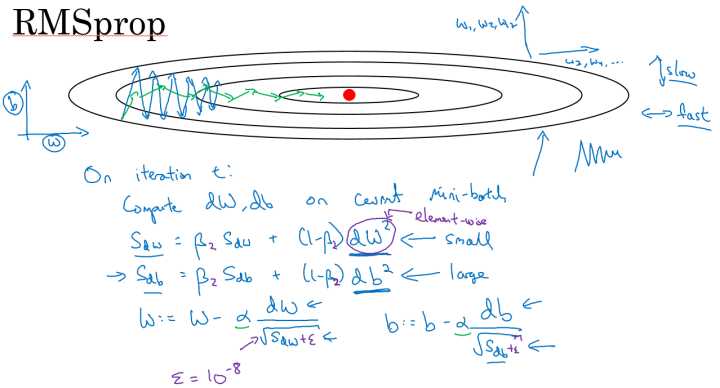 RMSprop
w₁, w₂, w₃
w₃, w₄, ...
slow
fast
b
w
On iteration t:
Compute dW, db on current mini-batch
element-wise
S_dw = β₂ S_dw + (1-β₂) dW² ← small
→ S_db = β₂ S_db + (1-β₂) db² ← large
W := W - α dW ← / √S_dw+ε ←
b := b - α db ← / √S_db+ε ←
ε = 10⁻⁸